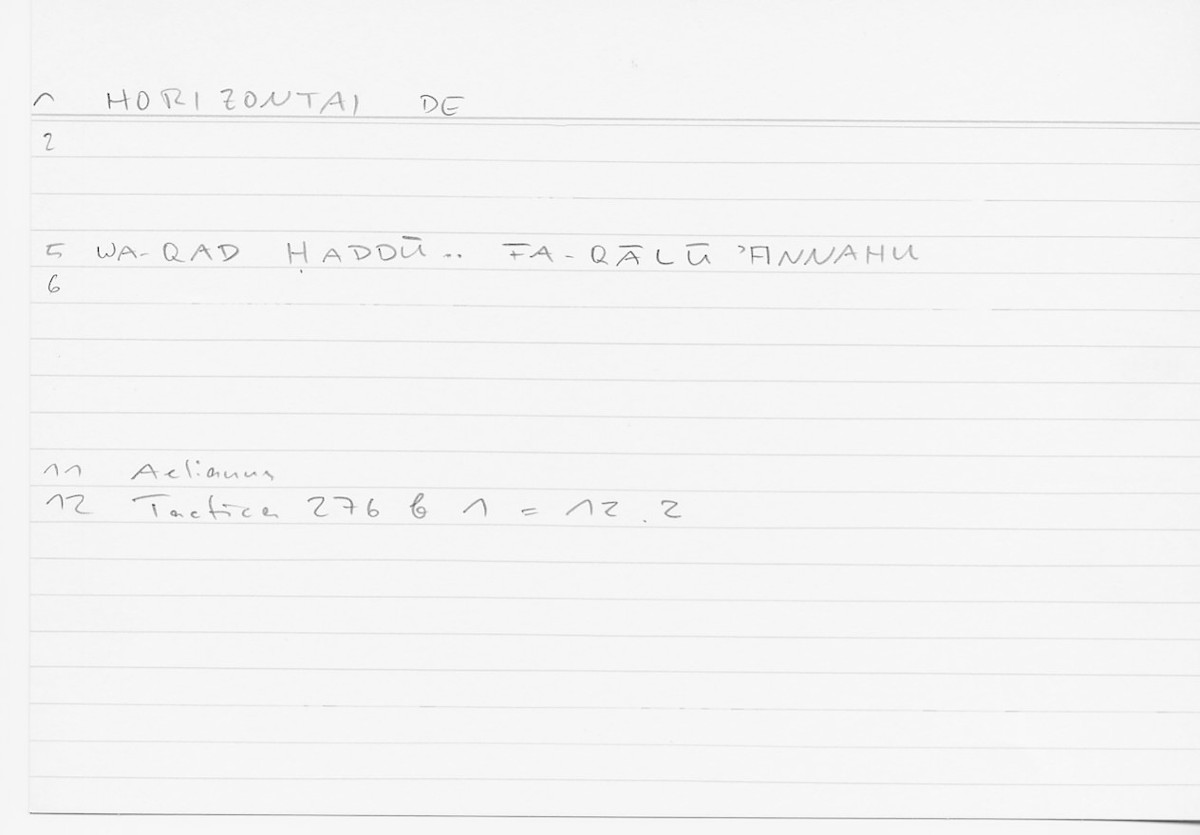 1 HORIZONTAI DE
2
5 WA-QAD ḤADDŪ.. FA-QĀLŪ ʾANNAHU
6
11 Aelianus
12 Tactica 276 b 1 = 12.2